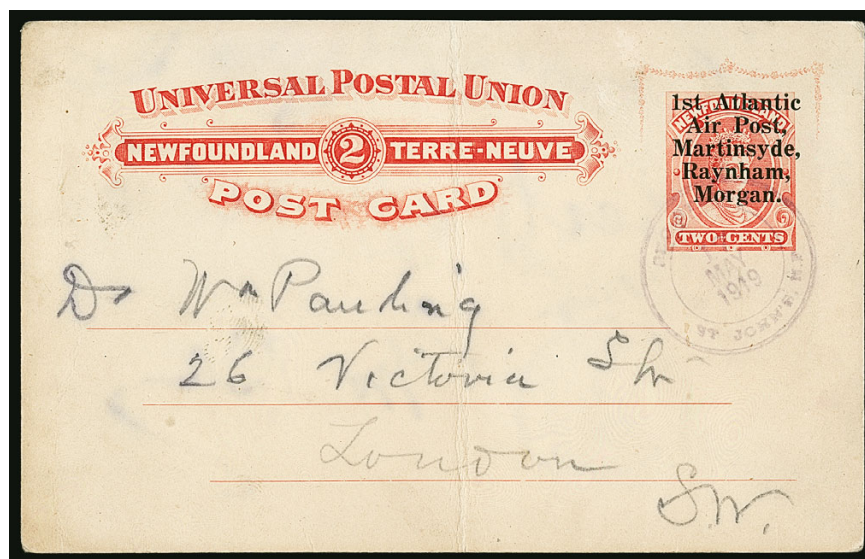 UNIVERSAL POSTAL UNION
NEWFOUNDLAND 2 TERRE-NEUVE
POST CARD
1st Atlantic
Air Post,
Martinsyde,
Raynham,
Morgan.
TWO CENTS
MAY
1919
ST JOHN'S
Dr Wm Pauling
26 Victoria Str
London
S.W.